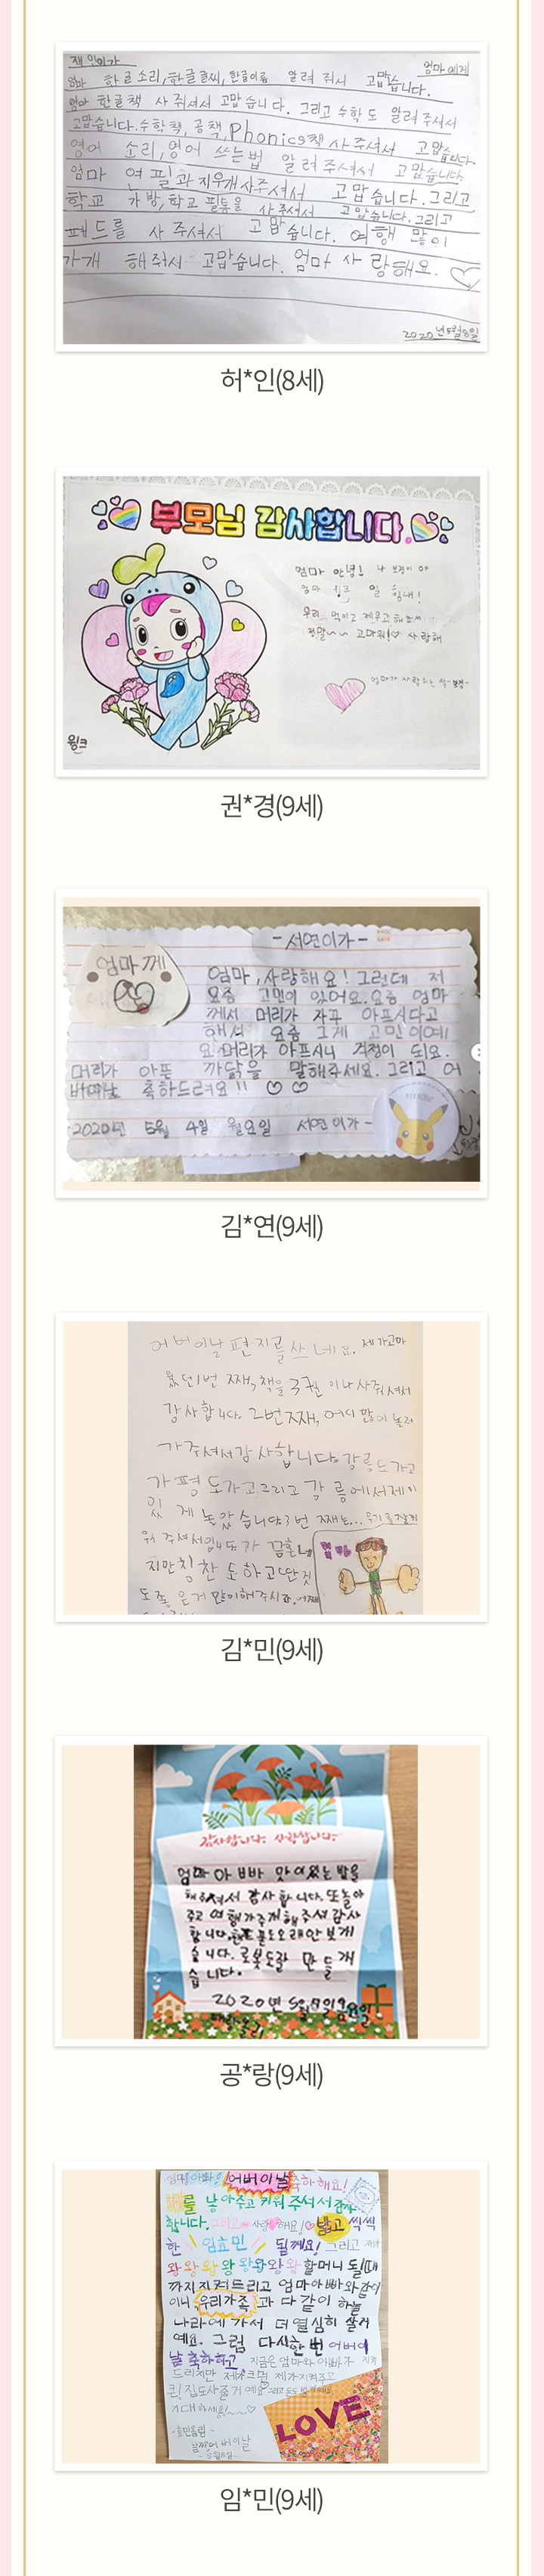 재인이가
엄마에게
엄마 한글소리, 한글글씨, 한글이름 알려 줘서 고맙습니다.
엄마 한글책 사 줘서 고맙습니다. 그리고 수학도 알려 주셔서
고맙습니다. 수학책, 공책, Phonics책 사 주셔서 고맙습니다.
영어 소리, 영어 쓰는법 알려 주셔서 고맙습니다.
엄마 연필과 지우개 사주셔서 고맙습니다. 그리고
학교 가방, 학교 필통을 사 주셔서 고맙습니다. 그리고
패드를 사 주셔서 고맙습니다. 여행 많이
가개 해줘서 고맙습니다. 엄마 사랑해요.
2020년 5월 8일
허*인(8세)
부모님 감사합니다.
엄마 안녕! 나 보경이야
엄마 윙크 일 힘내!
우리 먹이고 재우고 해
정말~~ 고마워!♡ 사랑해
엄마가 사랑하는 딸
윙크
권*경(9세)
-서연이가-
엄마께
엄마, 사랑해요! 그런데 저
요즘 고민이 있어요. 요즘 엄마
께서 머리가 자꾸 아프시다고
해서 요즘 그게 고민이에
요. 머리가 아프시니 걱정이 되요.
머리가 아픈 까닭을 말해주세요. 그리고 어
버이날 축하드려요!! ♡♡
2020년 5월 4일 월요일 서연이가-
김*연(9세)
어버이날 편지를 쓰네요. 제가고마
웠던1번 째, 책을 3권 이나 사줘서
감사합니다. 2번째, 어디 많이 놀러
가주셔서 감사합니다. 강릉도가고
가평도가고그리고 강릉에서재미
있게 놀았습니다 3번 째는...
워 주셔서입니다가
지만칭찬도하고딴짓
도
김*민(9세)
감사합니다. 사랑합니다.
엄마 아빠 맛있는 밥을
해주셔서 감사합니다. 또놀아
주고 여행가주게해주셔감사
합니다. 핸드폰도오래안보게
습니다. 로봇도잘 만들게
습니다.
2020년 5월
공*랑(9세)
어버이날 축하해요!
를 낳아주고 키워주셔서 감사
합니다. 그리고 사랑해요! 밝고 씩씩
한 임효민 될께요! 그리고 제가
왕왕왕왕왕왕왕왕 할머니 될때
까지지켜드리고 엄마아빠와같이
아니 우리가족과 다같이 하늘
나라에 가서 더 열심히 살거
예요. 그럼 다시한 번 어버이
날 축하하고 지금은 엄마와 아빠가 지켜
드리지만 제가크면 제가지켜주고
큰! 집도사줄거예요
기대하세요!~~♡
-효민올림-
어버이날
LOVE
임*민(9세)